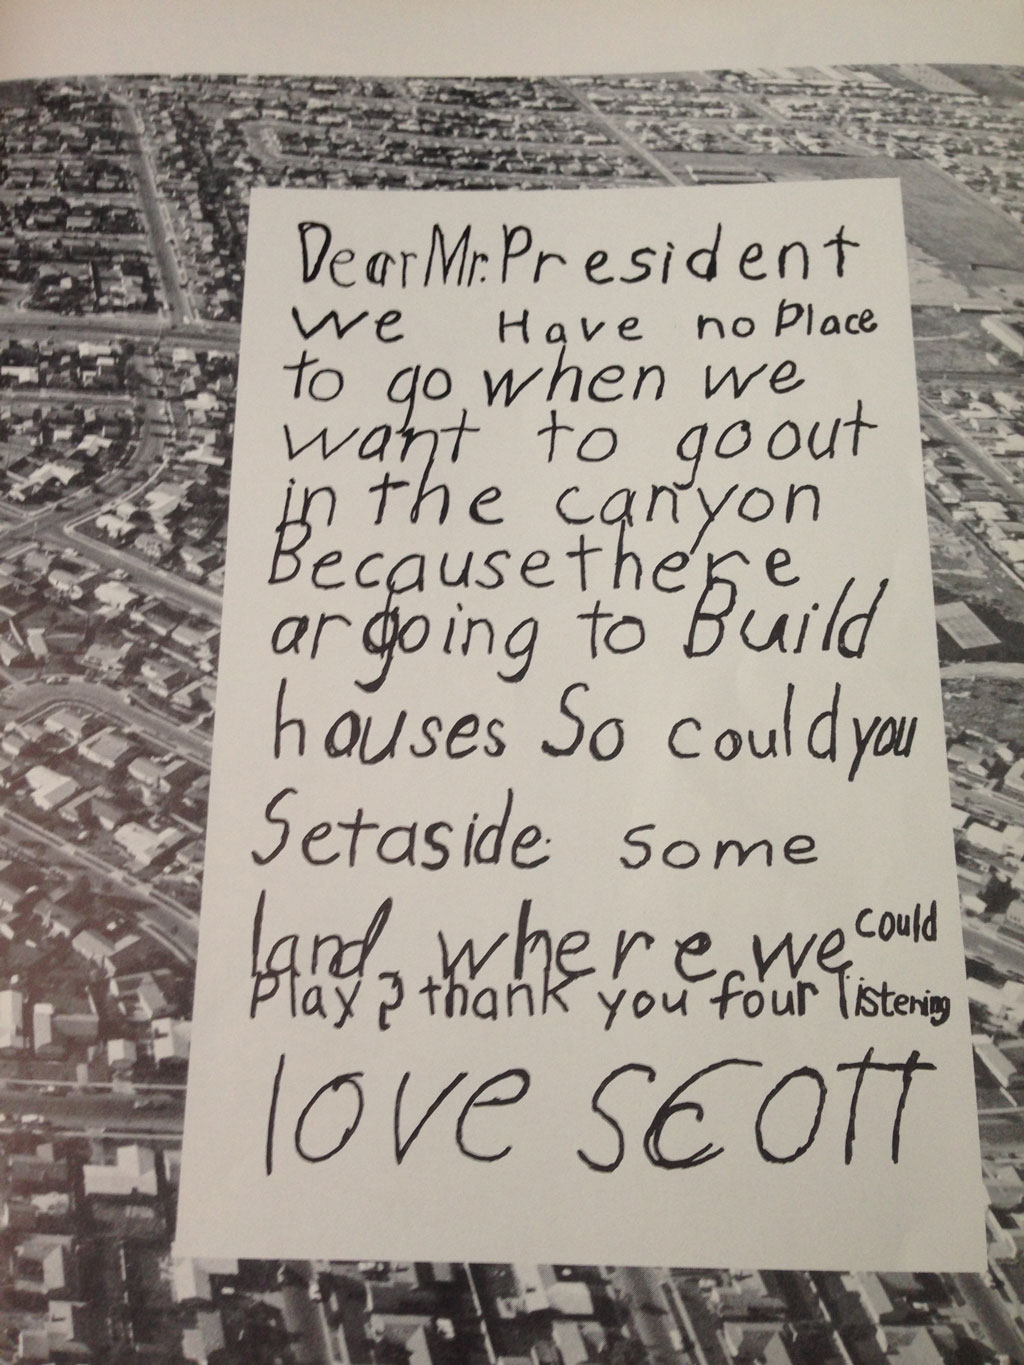 Dear Mr. President
we Have no Place
to go when we
want to go out
in the canyon
Because there
ar going to Build
houses So could you
Set aside some
land, where we could
Play? thank you four listening
love SCOTT